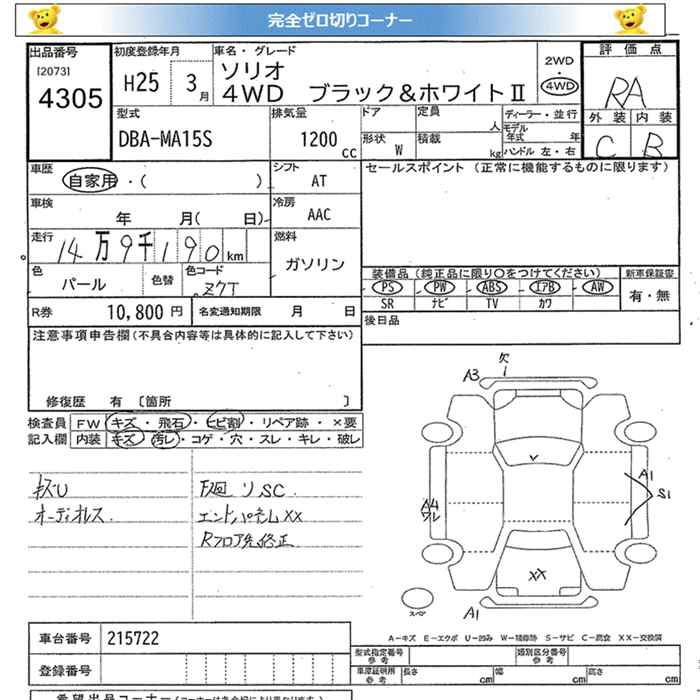 完全ゼロ切りコーナー
出品番号 初度登録年月 車名・グレード 評価点
[2073] 4305 H25 3月 ソリオ 2WD
4WD ブラック＆ホワイトⅡ 4WD RA
型式 排気量 ドア 定員 人 ディーラー・並行 外装 内装
DBA-MA15S 1200 cc 形状 W 積載 kg モデル年式 年 C B
ハンドル 左・右
車歴 自家用・( ) シフト AT セールスポイント (正常に機能するものに限ります)
車検 年 月( 日) 冷房 AAC
走行 14万9千190km 燃料 ガソリン
色 パール 色替 色コード ZCT 装備品 (純正品に限り○をつけてください) 新車保証書
PS PW ABS エアB AW 有・無
SR ナビ TV カワ
R券 10,800円 名変通知期限 月 日 後日品
注意事項申告欄(不具合内容等は具体的に記入して下さい)
修復歴 有 〔箇所 〕
検査員 FW キズ・飛石・ヒビ割・リペア跡・×要
記入欄 内装 キズ・汚レ・コゲ・穴・スレ・キレ・破レ
キズU
オーディオレス.
リSC
エンドパネルXX
Rフロア 修正
A3 欠
A1
S1
A4
ワレ
XX
スペア
A1
A－キズ E－エクボ U－凹み W－補修跡 S－サビ C－腐食 XX－交換済
車台番号 215722 型式指定番号 参考 類別区分番号 参考
登録番号 車庫証明用 参考 長さ cm 幅 cm 高さ cm
希望出品コーナー